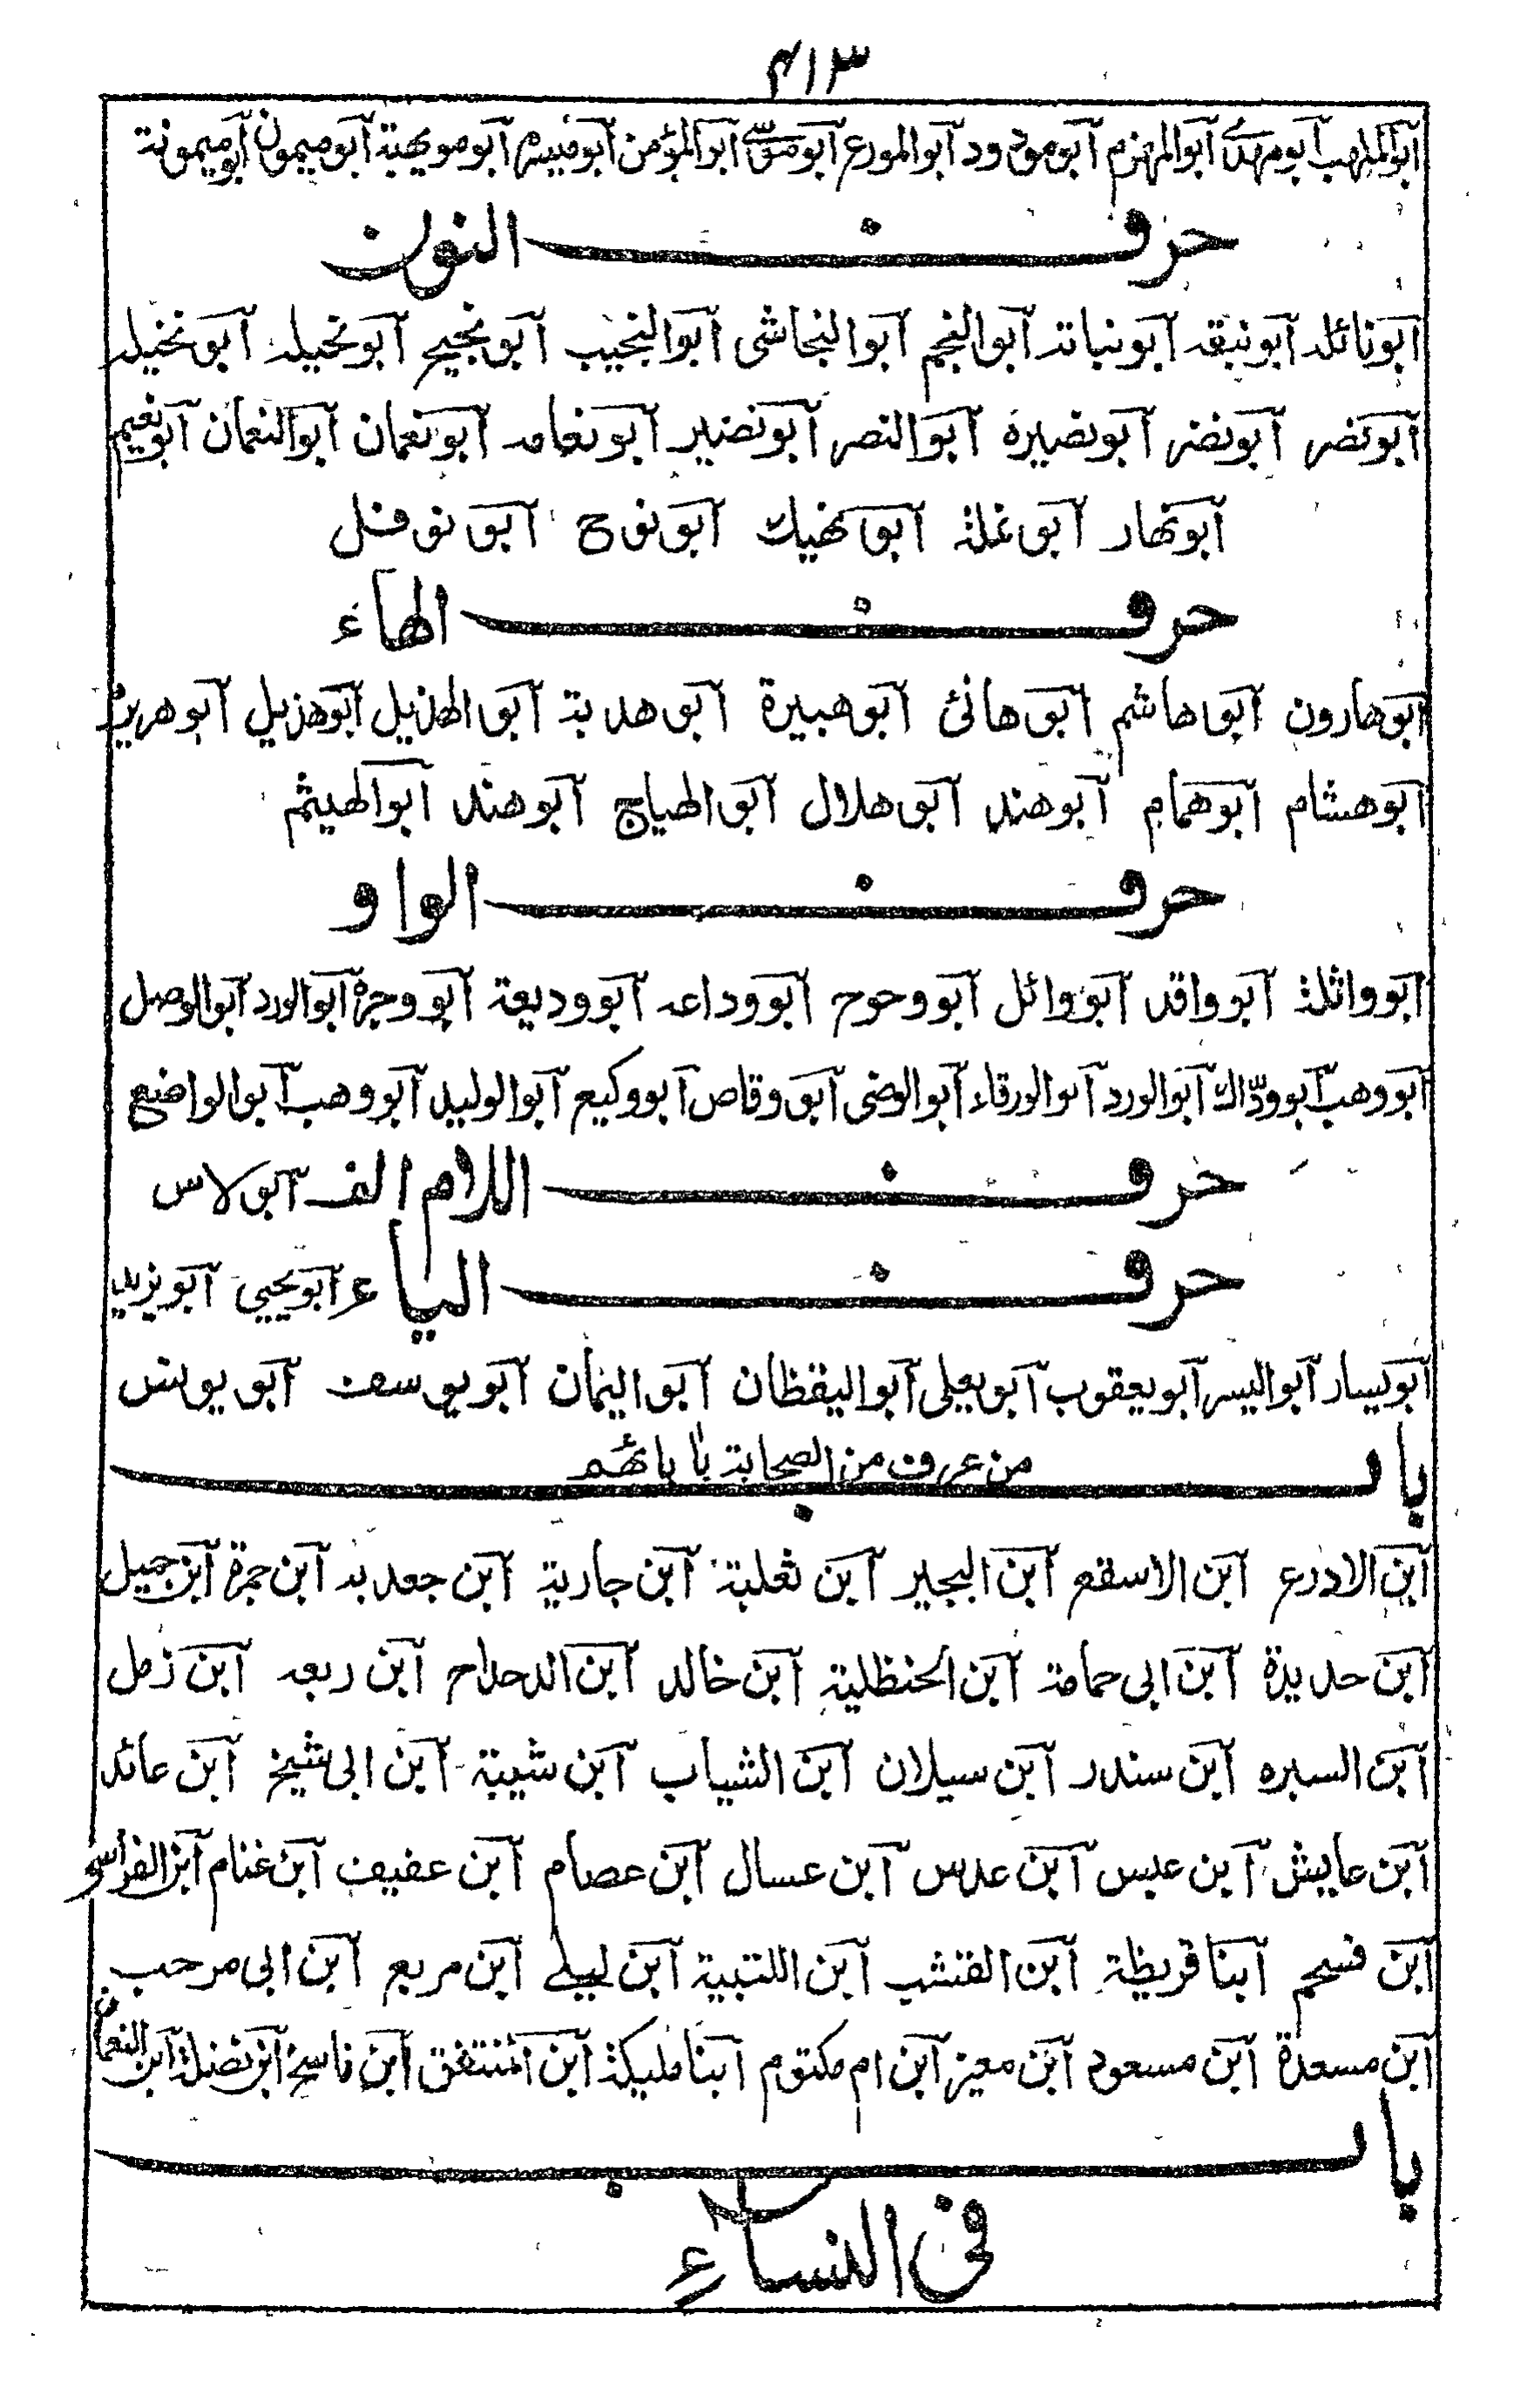 ۴۱۳
ابوالمهلب ابومهدی ابوالمهزم ابومودود ابوالمورع ابوموسی ابوالمؤمن ابومیسره ابومویهبة ابومیمون ابومیمونة
حرف النون
ابونائله ابونبقه ابونباته ابوالنجم ابوالنجاشی ابوالنجیب ابونجیح ابونحیله ابونخیله
ابونصر ابونضر ابونضیرة ابوالنصر ابونضیر ابونعامه ابونعمان ابوالنعمان ابونعیم
ابونهار ابونملة ابونهیك ابونوح ابونوفل
حرف الهاء
ابوهارون ابوهاشم ابوهانئ ابوهبیرة ابوهدبة ابوالهذیل ابوهذیل ابوهریرة
ابوهشام ابوهمام ابوهند ابوهلال ابوالهیاج ابوهند ابوالهیثم
حرف الواو
ابوواثلة ابوواقد ابووائل ابووحوح ابووداعه ابوودیعة ابووجزة ابوالورد ابوالوصل
ابووهب ابوودّاك ابوالورد ابوالورقاء ابوالوضی ابووقاص ابووکیع ابوالولید ابووهب ابوالواضع
حرف اللام الف ابولاس
حرف الیاء ابویحیی ابویزید
ابویسار ابوالیسر ابویعقوب ابویعلی ابوالیقظان ابوالیمان ابویوسف ابویونس
باب من عرف من الصحابة بآبائهم
ابن الادرع ابن الاسقع ابن البجیر ابن ثعلبة ابن جاریة ابن جعدبه ابن جمرة ابن جمیل
ابن حدیدة ابن ابی حمامة ابن الحنظلیة ابن خالد ابن الدحداح ابن ربعه ابن زمل
ابن السبره ابن سندر ابن سیلان ابن الشیاب ابن شیبة ابن ابی شیخ ابن عائد
ابن عایش ابن عبس ابن عدس ابن عسال ابن عصام ابن عفیف ابن غنام ابن الفراسی
ابن فسحم ابنا قریظة ابن القشب ابن اللتبیة ابن لیلے ابن مربع ابن ابی مرحب
ابن مسعدة ابن مسعود ابن معیز ابن ام مکتوم ابنا ملیکة ابن المنتفق ابن ناسح ابن نضلة ابن النعمان
باب
فی النساء